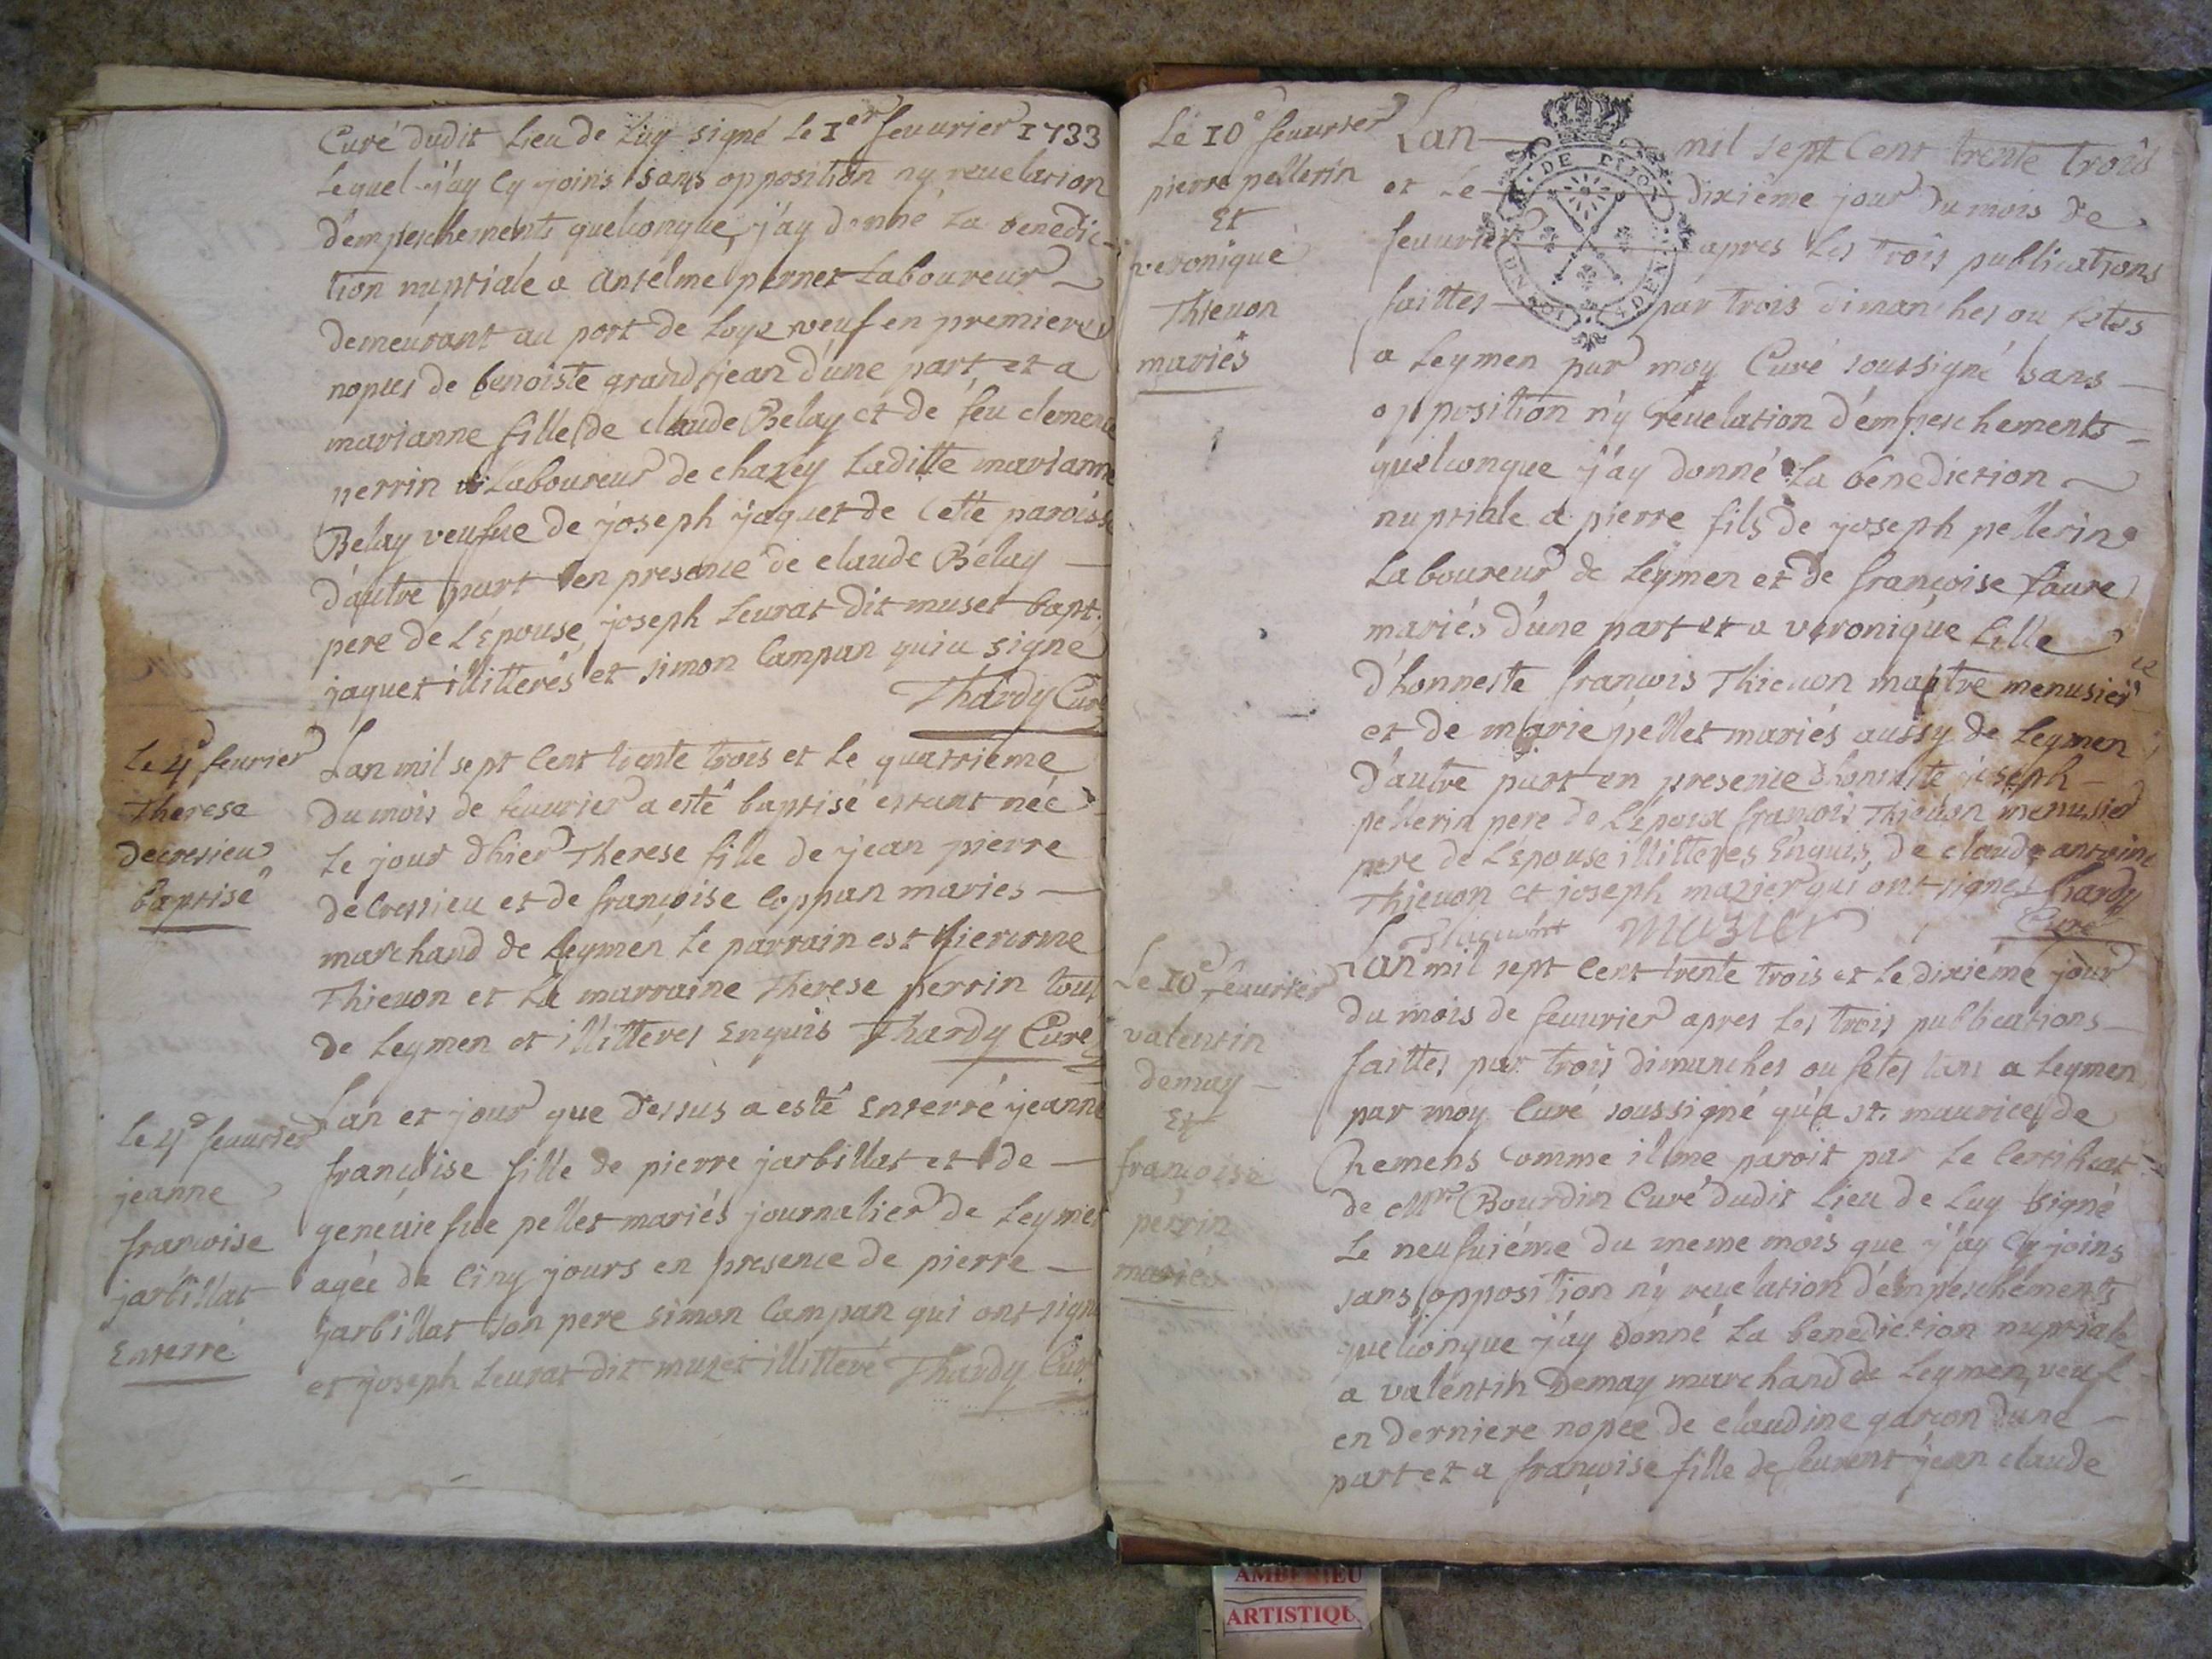 Curé dudit Lieu de Luy signé Le 1er feuurier 1733
Lequel j'ay Cy joins sans opposition ny reuelation
d'empeschements quelconque, j'ay donné La benedic-
tion nuptiale a Antelme pernet Laboureur
demeurant au port de Loye veuf en premieres
nopces de benoiste grand jean d'une part et a
marianne fille de claude Belay et de feu clemence
perrin Laboureur de chazey Laditte marianne
Belay veufue de joseph jaquet de Cette paroisse
d'autre part en presence de claude Belay
pere de L'Epouse, joseph Leurat dit muset bapt.
jaquet illitterés et simon Campan qui a signé
Thardy Curé
Le 4e feurier
Therese
decresieu
baptisé
Lan mil sept Cent trente trois et Le quatrieme
du mois de feuurier a esté baptisé estant née
Le jour d'hier Therese fille de jean pierre
de Cressieu et de françoise Coppan mariés
marchand de Leymen Le parrain est hierosme
Thieuon et La marraine Therese perrin tous
de Leymen et illitteres Enquis Thardy Curé
Le 4e feuurier
jeanne
francoise
jarbillat
Enterré
Lan et jour que dessus a esté Enterré jeanne
françoise fille de pierre jarbillat et de
geneuiefue pellet mariés journalier de Leymen
agée de Cinq jours en presence de pierre
jarbillat son pere simon Campan qui ont signé
et joseph Leurat dit muzet illitteré Thardy Curé
Le 10e feuurier
pierre pellerin
Et
veronique
Thieuon
mariés
Lan mil sept Cent trente trois
et Le dixième jour du mois de
feuurier apres Les trois publications
faittes par trois dimanches ou fetes
a Leymen par moy Curé soussigné sans
opposition n'y reuelation d'empeschements
quelconque j'ay donné La benediction
nuptiale a pierre fils de joseph pellerin
Laboureur de Leymen et de françoise faure
mariés d'une part et a veronique fille
d'honneste francois Thieuon maitre menusier
et de marie pellet mariés aussy de Leymen
d'autre part en presence d'honneste joseph
pellerin pere de L'époux francois Thieuon menusier
pere de L'Epouse illitteres Enquis, de claude antoine
Thieuon et joseph mazier qui ont signes Thardy
Mazier Curé
Le 10e feuurier
valentin
demay
Et
francoise
perrin
mariés
Lan mil sept Cent trente trois et Le dixiéme jour
du mois de feuurier apres Les trois publications
faittes par trois dimanches ou fetes tant a Leymen
par moy Curé soussigné qu'a st. maurice de
Remens Comme il me paroit par Le Certificat
de Mre Bourdin Curé dudit Lieu de Luy signé
Le neufuiéme du meme mois que j'ay Cy joins
sans opposition n'y reuelation d'empeschements
quelconque j'ay donné La benediction nuptiale
a valentin Demay marchand de Leymen veuf
en derniere nopce de claudine garcon d'une
part et a françoise fille de Laurent jean claude
DE DIJON
AMBERIEU
ARTISTIQU